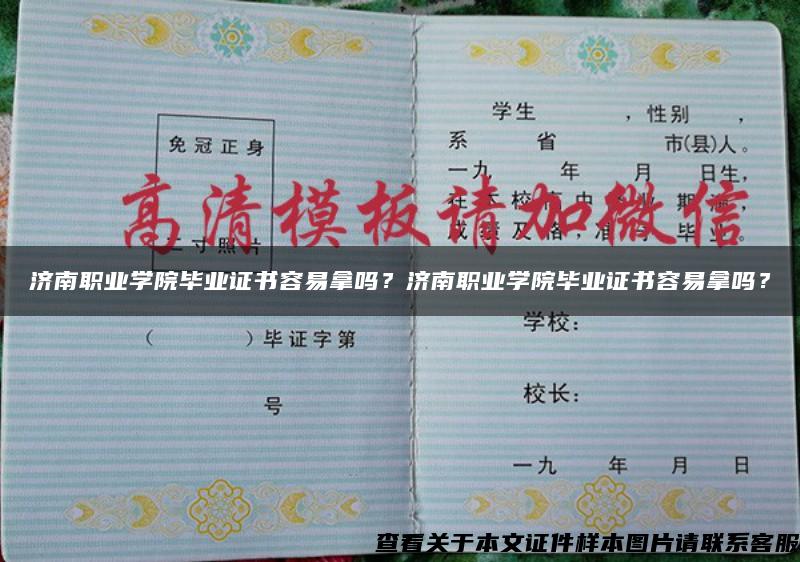 免冠正身
二寸照片
(      )毕证字第
号
学生      ,性别  ,
系    省      市(县)人。
一九    年   月   日生,
期满,
成绩及格,准予毕业。
高清模板请加微信
济南职业学院毕业证书容易拿吗？济南职业学院毕业证书容易拿吗？
学校：
校长：
一九  年  月  日
查看关于本文证件样本图片请联系客服